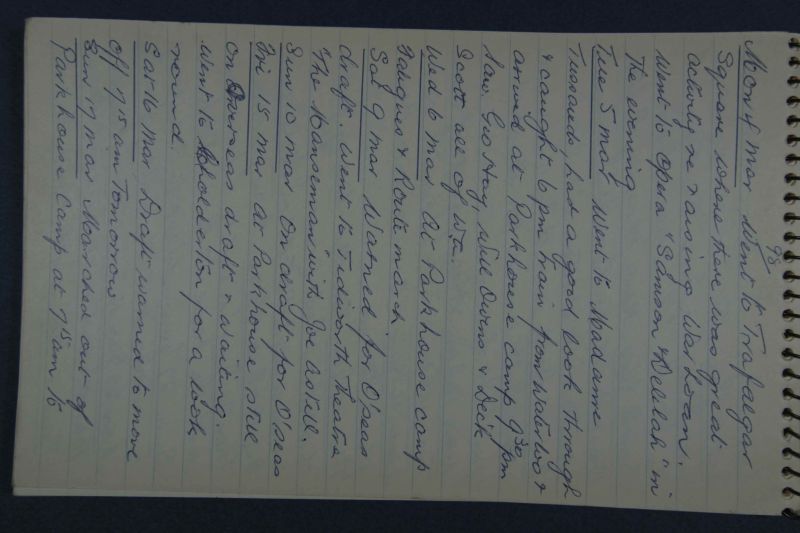 90
Mon 4 Mar Went to Trafalgar
Square where there was great
activity re raising War Loan.
Went to Opera "Samson & Delilah" in
the evening
Tue 5 Mar Went to Madame
Tussauds, had a good look through
& caught 6 pm train from Waterloo &
arrived at Parkhouse camp 9 30 pm
Saw Geo Hay, Will Owens & Dick
Scott all of WA.
Wed 6 Mar At Parkhouse camp
Fatigues & Route march
Sat 9 Mar Warned for O'seas
draft. Went to Tidworth Theatre
"The Hanseman" with Joe Astill.
Sun 10 Mar On draft for O'seas
Fri 15 Mar At Parkhouse still
on Overseas draft & waiting.
Went to Sholderton for a look
round.
Sat 16 Mar Draft warned to move
off 7 15 am Tomorrow
Sun 17 Mar Marched out of
Parkhouse Camp at 7 15 am to